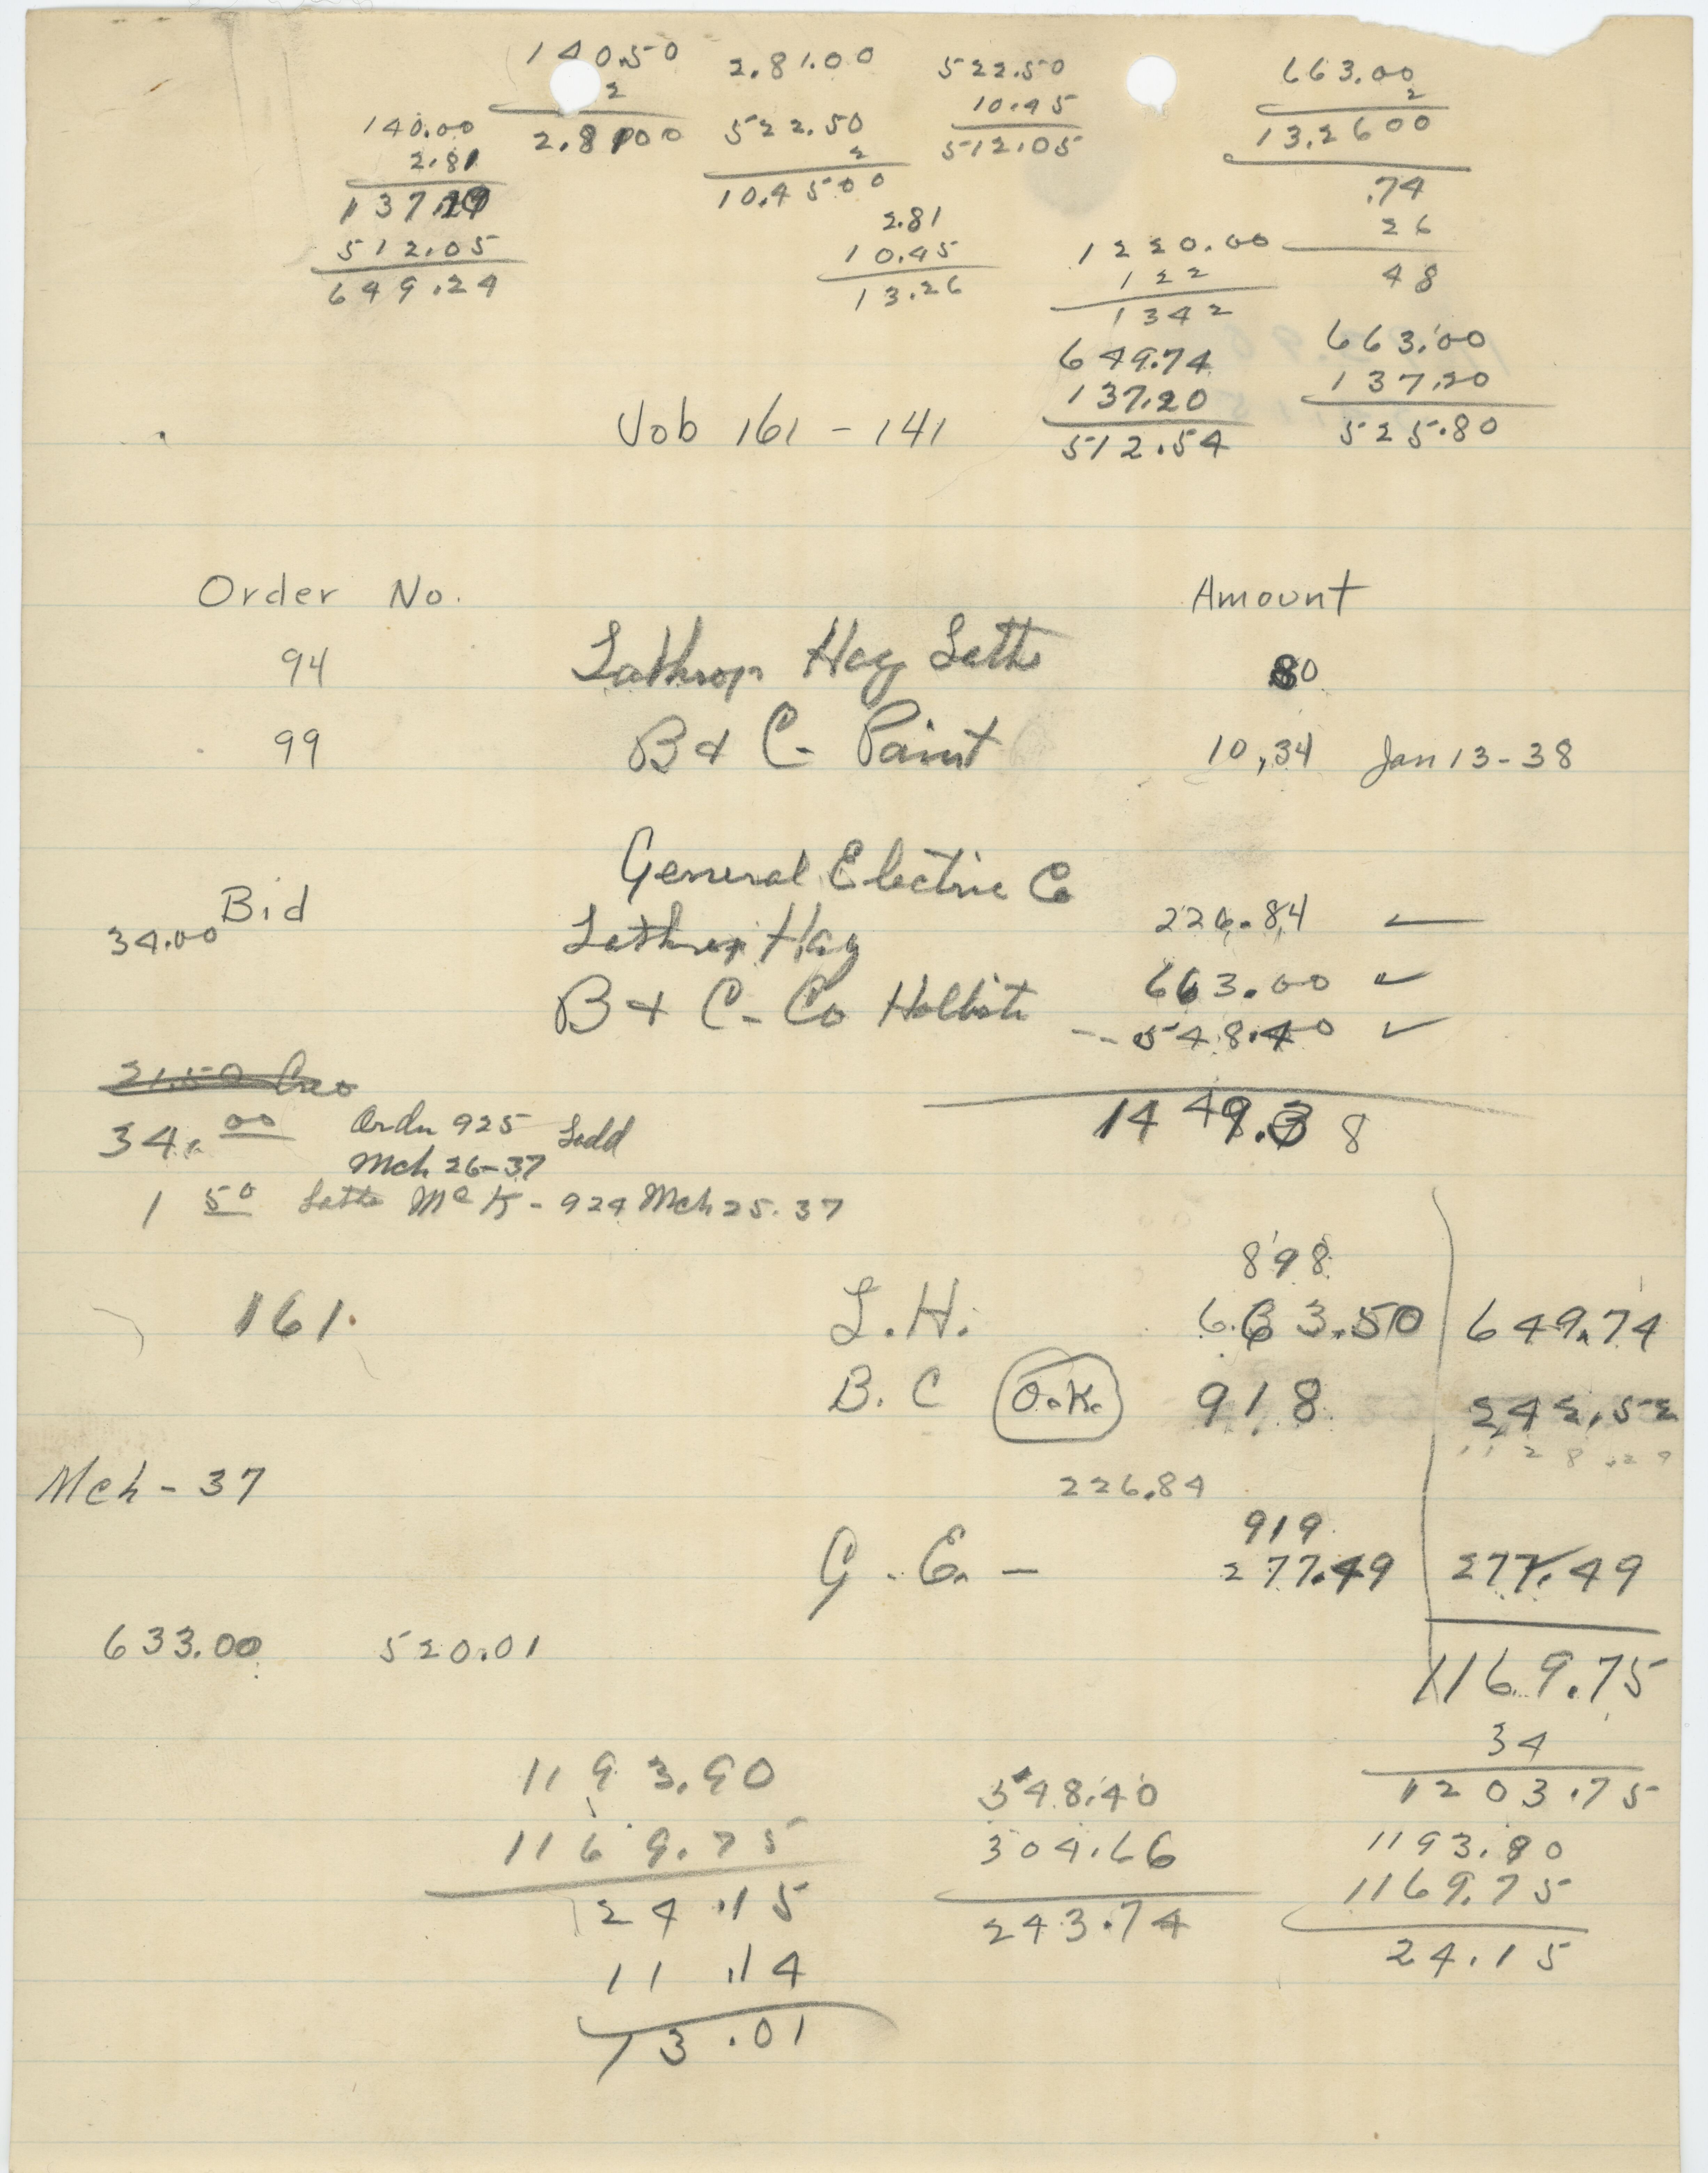 140.50 2.81.00 522.50 663.00
2 10.45 2
140.00 2.8100 522.50 512.05 13.2600
2.81 2 .74
137.19 10.4500 26
512.05 2.81 1220.00 48
649.24 10.45 122
13.26 1342
649.74 663.00
137.20 137.20
Job 161 - 141 512.54 525.80
Order No. Amount
94 Lathrop Hay Laths 80
99 B & C - Paint 10,34 Jan 13-38
General Electric Co
Bid 226.84
34.00 Lathrop Hay 663.00
B & C - Co 548.40
1449.38
34.00 Order 925 Ladd
Mch 26-37
1 50 Laths McK - 924 Mch 25.37
898
161. L.H. 663.50 649.74
B. C O.K. 918 242.52
1128.29
Mch - 37 226.84
919
G. E. - 277.49 277.49
633.00 520.01
1169.75
34
1193.90 348.40 1203.75
1169.75 304.66 1193.90
24.15 243.74 1169.75
11.14 24.15
13.01